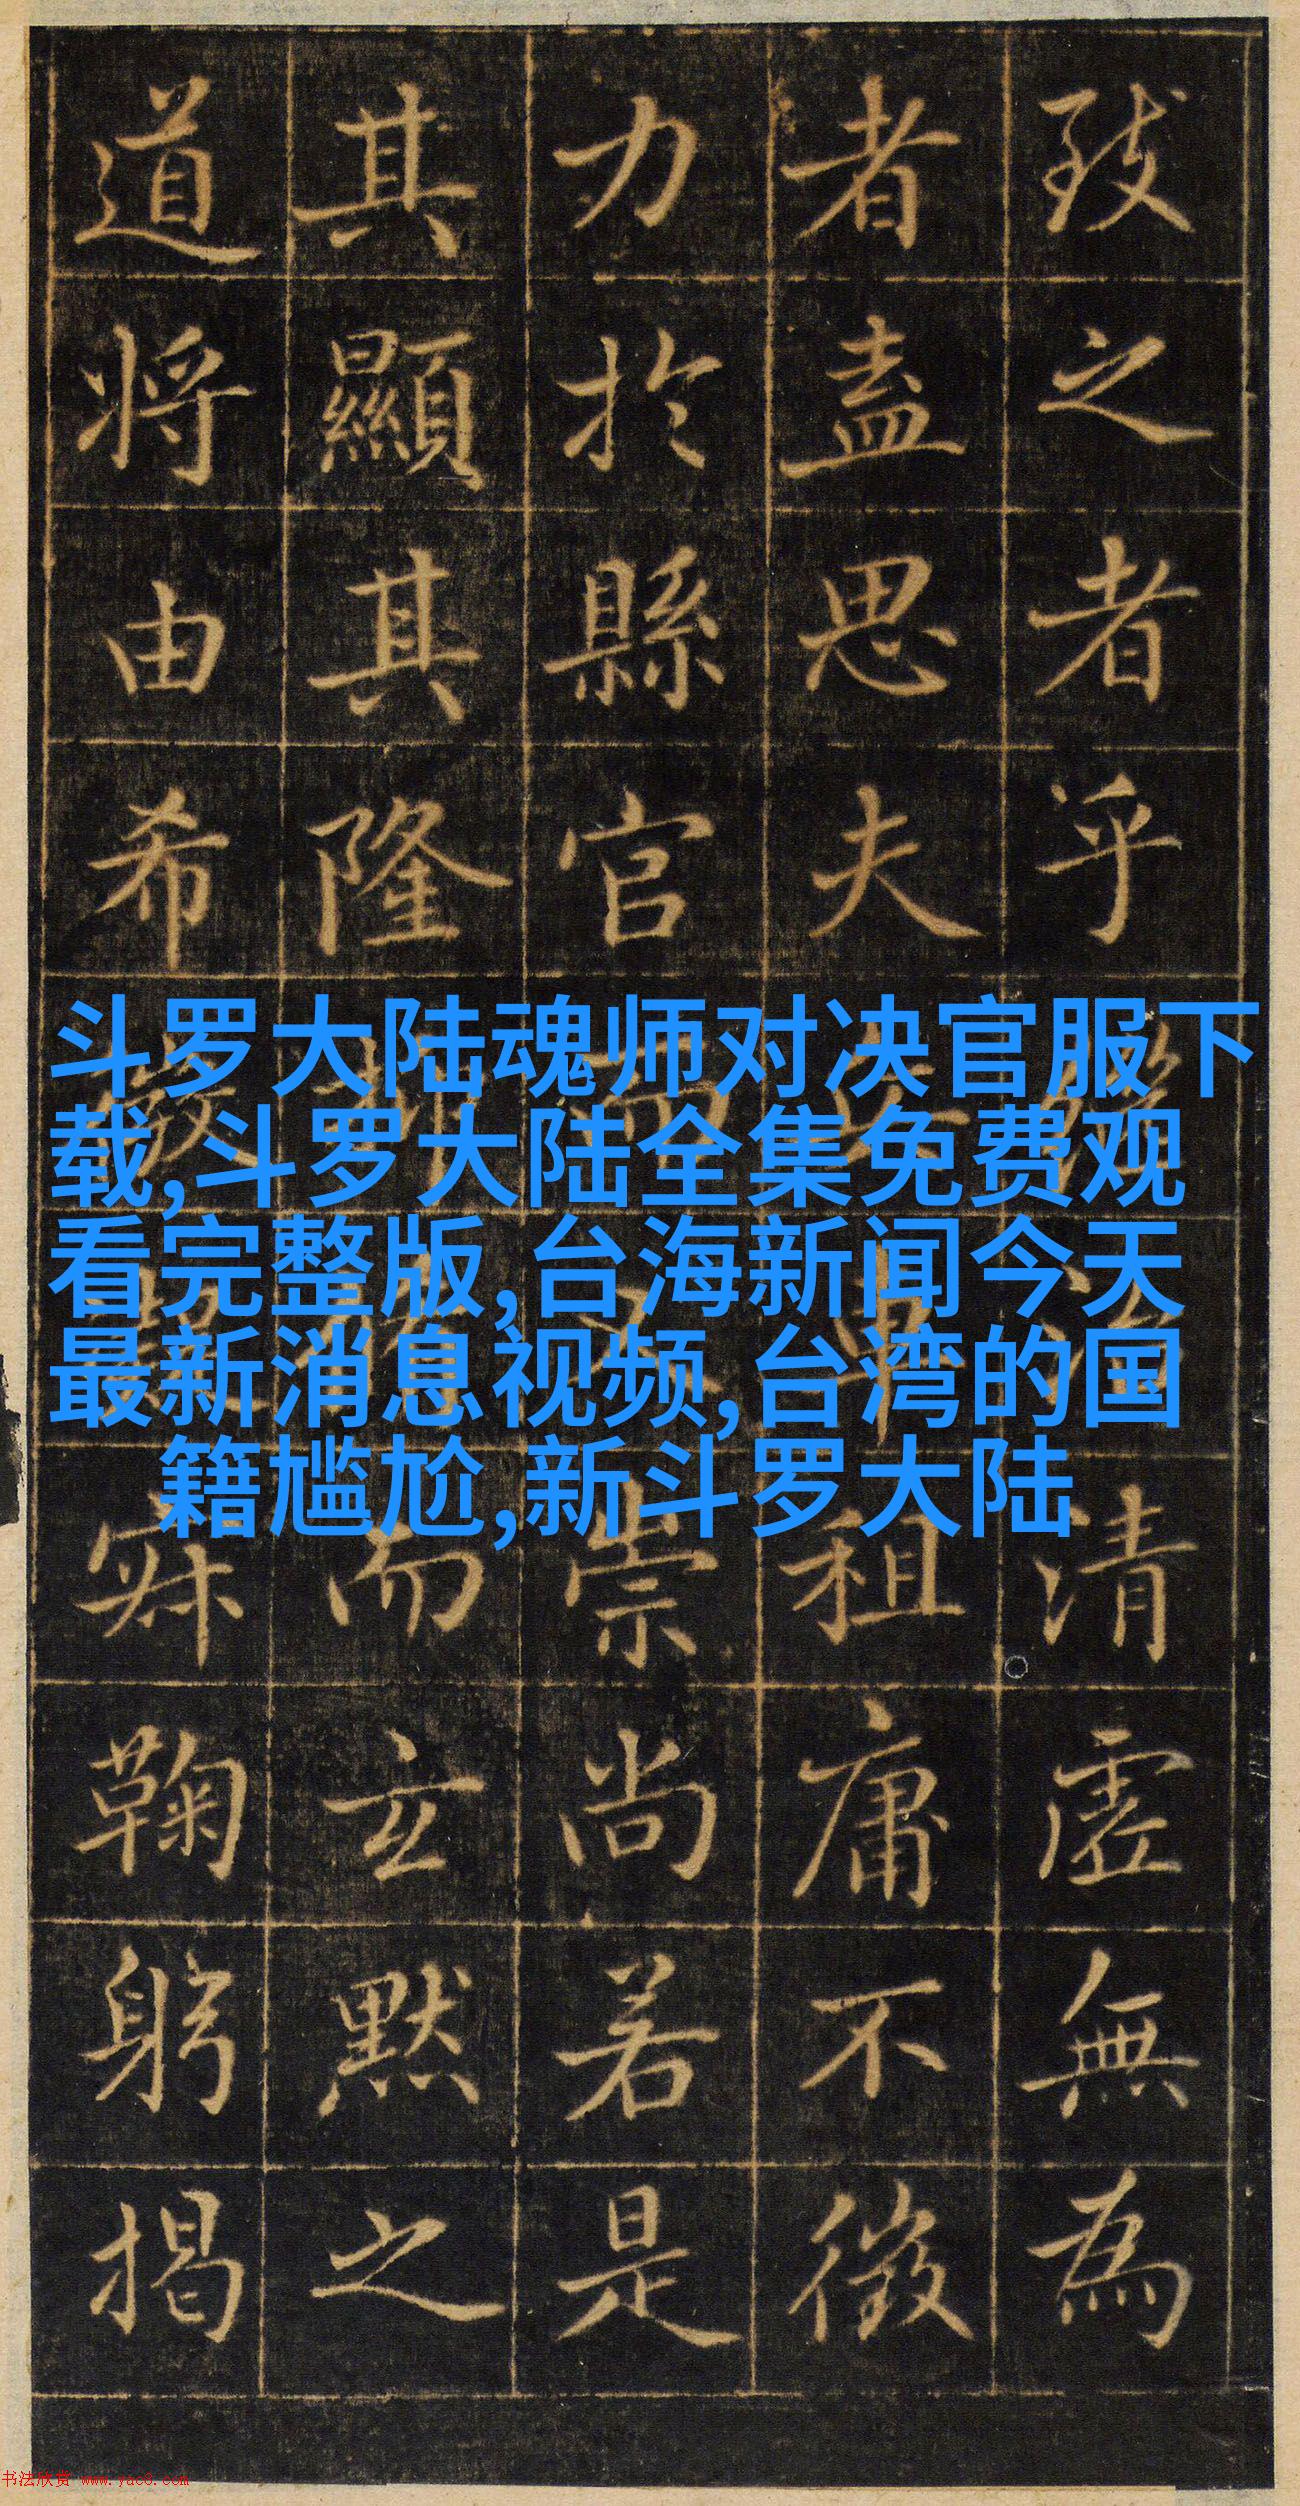 致之者乎清虛無為
者盡思夫租庸不徵
力於縣官而崇尚若是
其顯其隆而玄默之
道將由希寂鞠躬揭
斗罗大陆魂师对决官服下
载,斗罗大陆全集免费观
看完整版,台海新闻今天
最新消息视频,台湾的国
籍尴尬,新斗罗大陆
书法欣赏 www.yac8.com